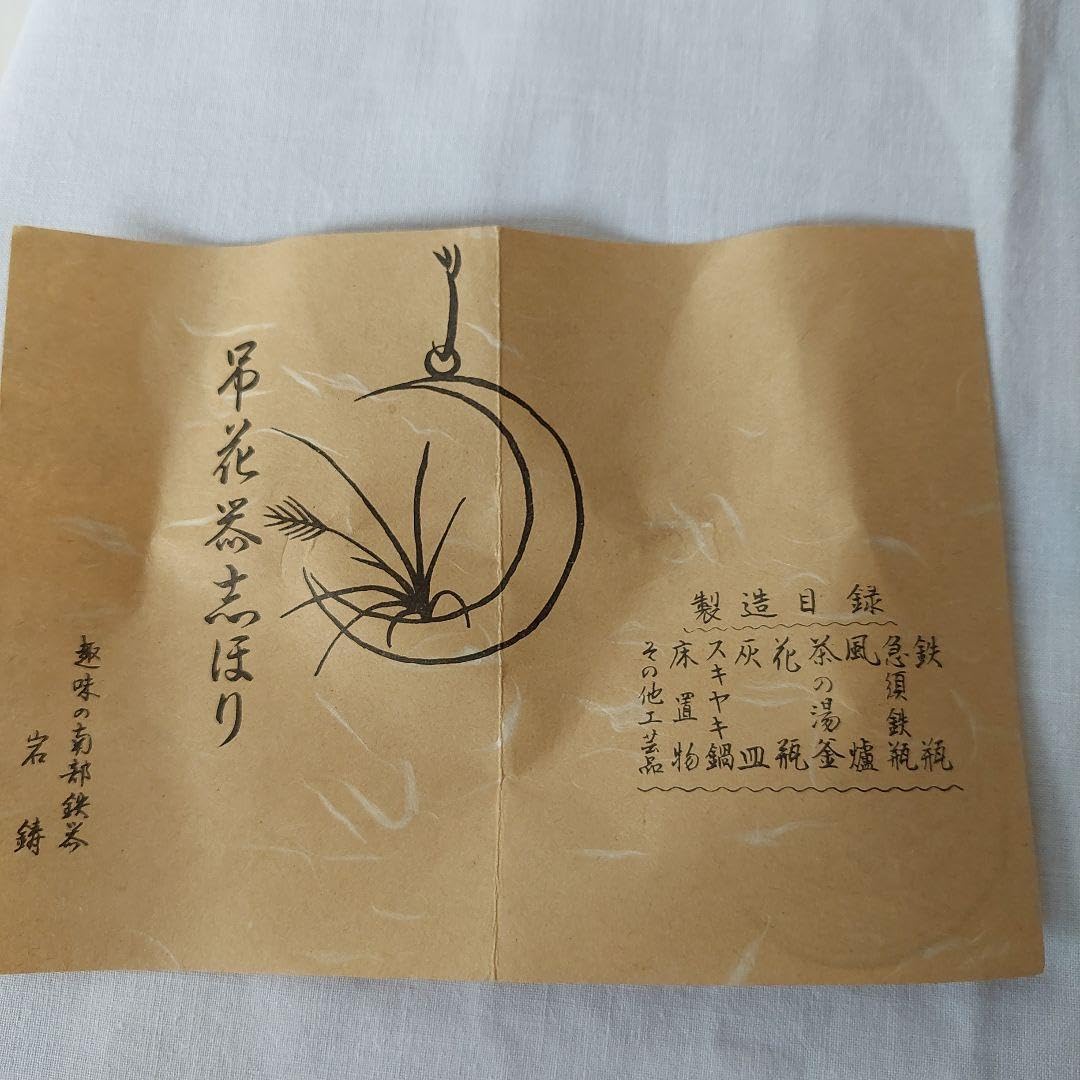 製造目録
鉄瓶
急須鉄瓶
風爐
茶の湯釜
花瓶
灰皿
スキヤキ鍋
床置物
その他工芸品
吊花器志ほり
趣味の南部鉄器
岩鋳